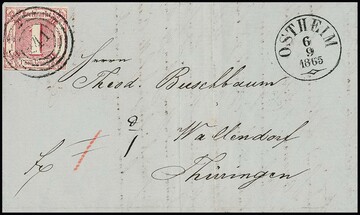 1
OSTHEIM
6
9
1865
Herrn
Theod. Buselbaum
Wallendorf
Thüringen
fr